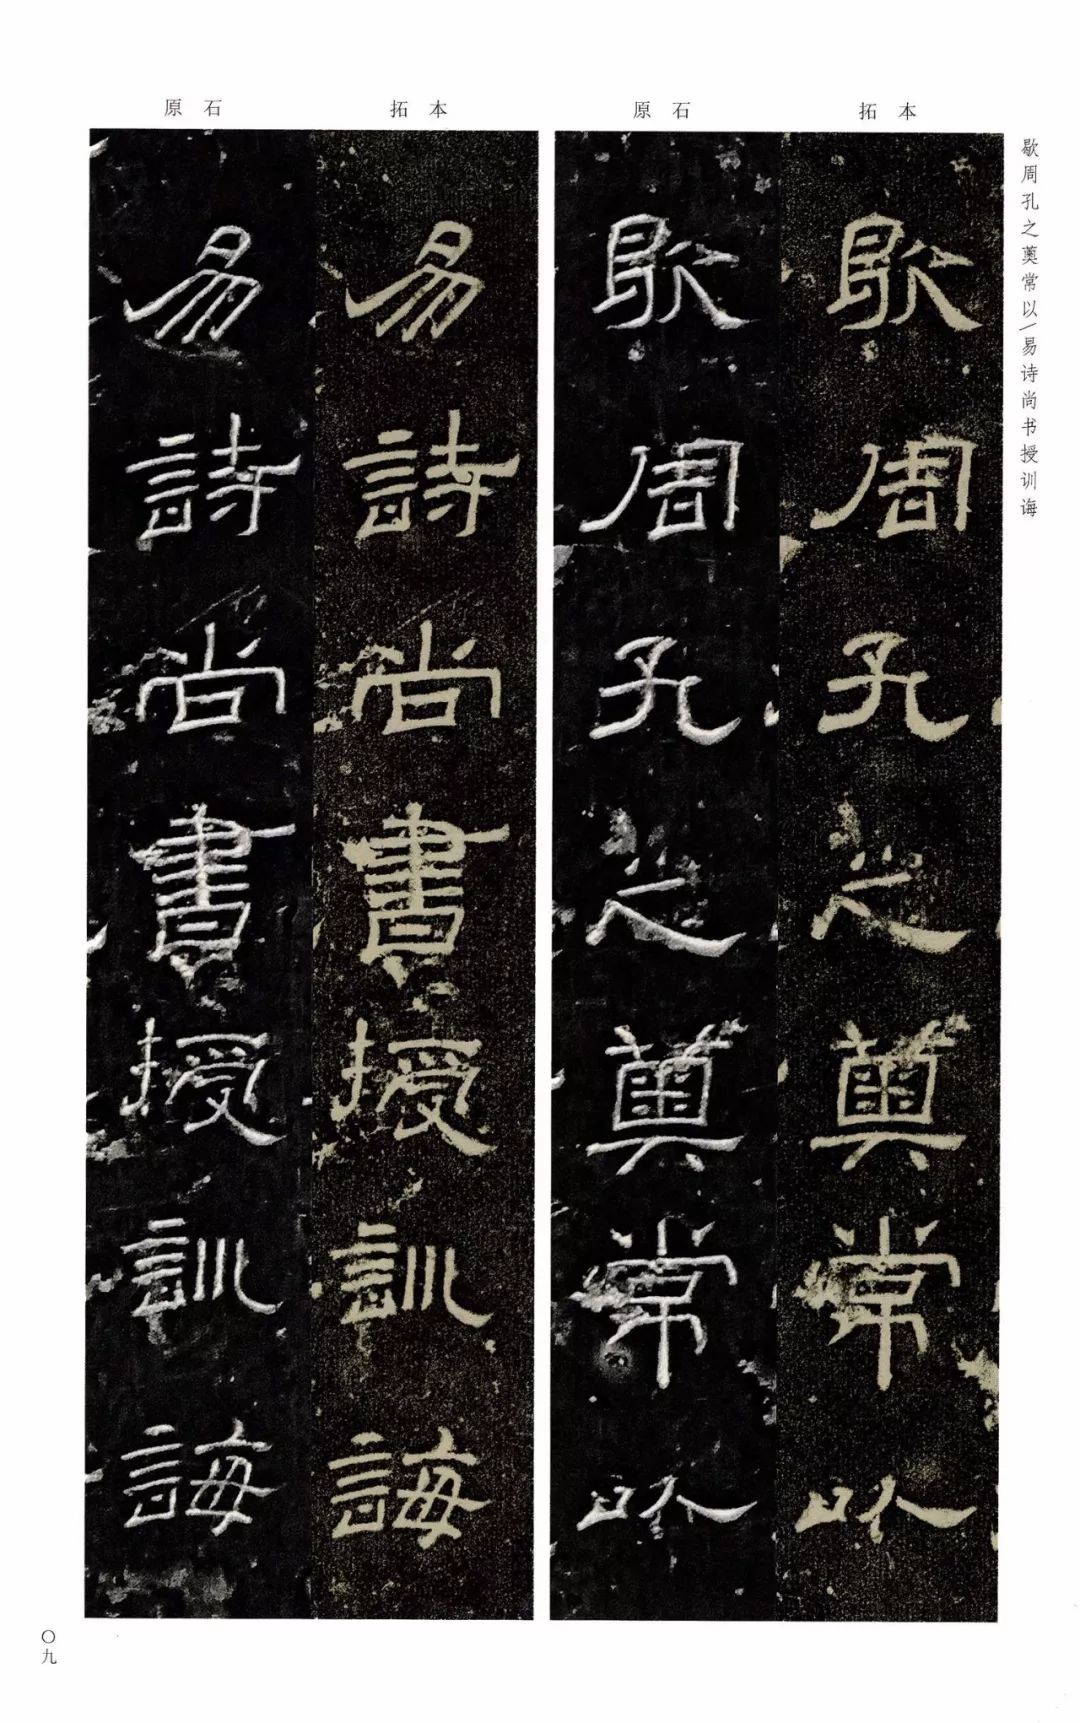 原石
拓本
原石
拓本
歇周孔之薁常以/易诗尚书授训诲
歇周孔之薁常以
歇周孔之薁常以
易詩尚書授訓誨
易詩尚書授訓誨
〇九